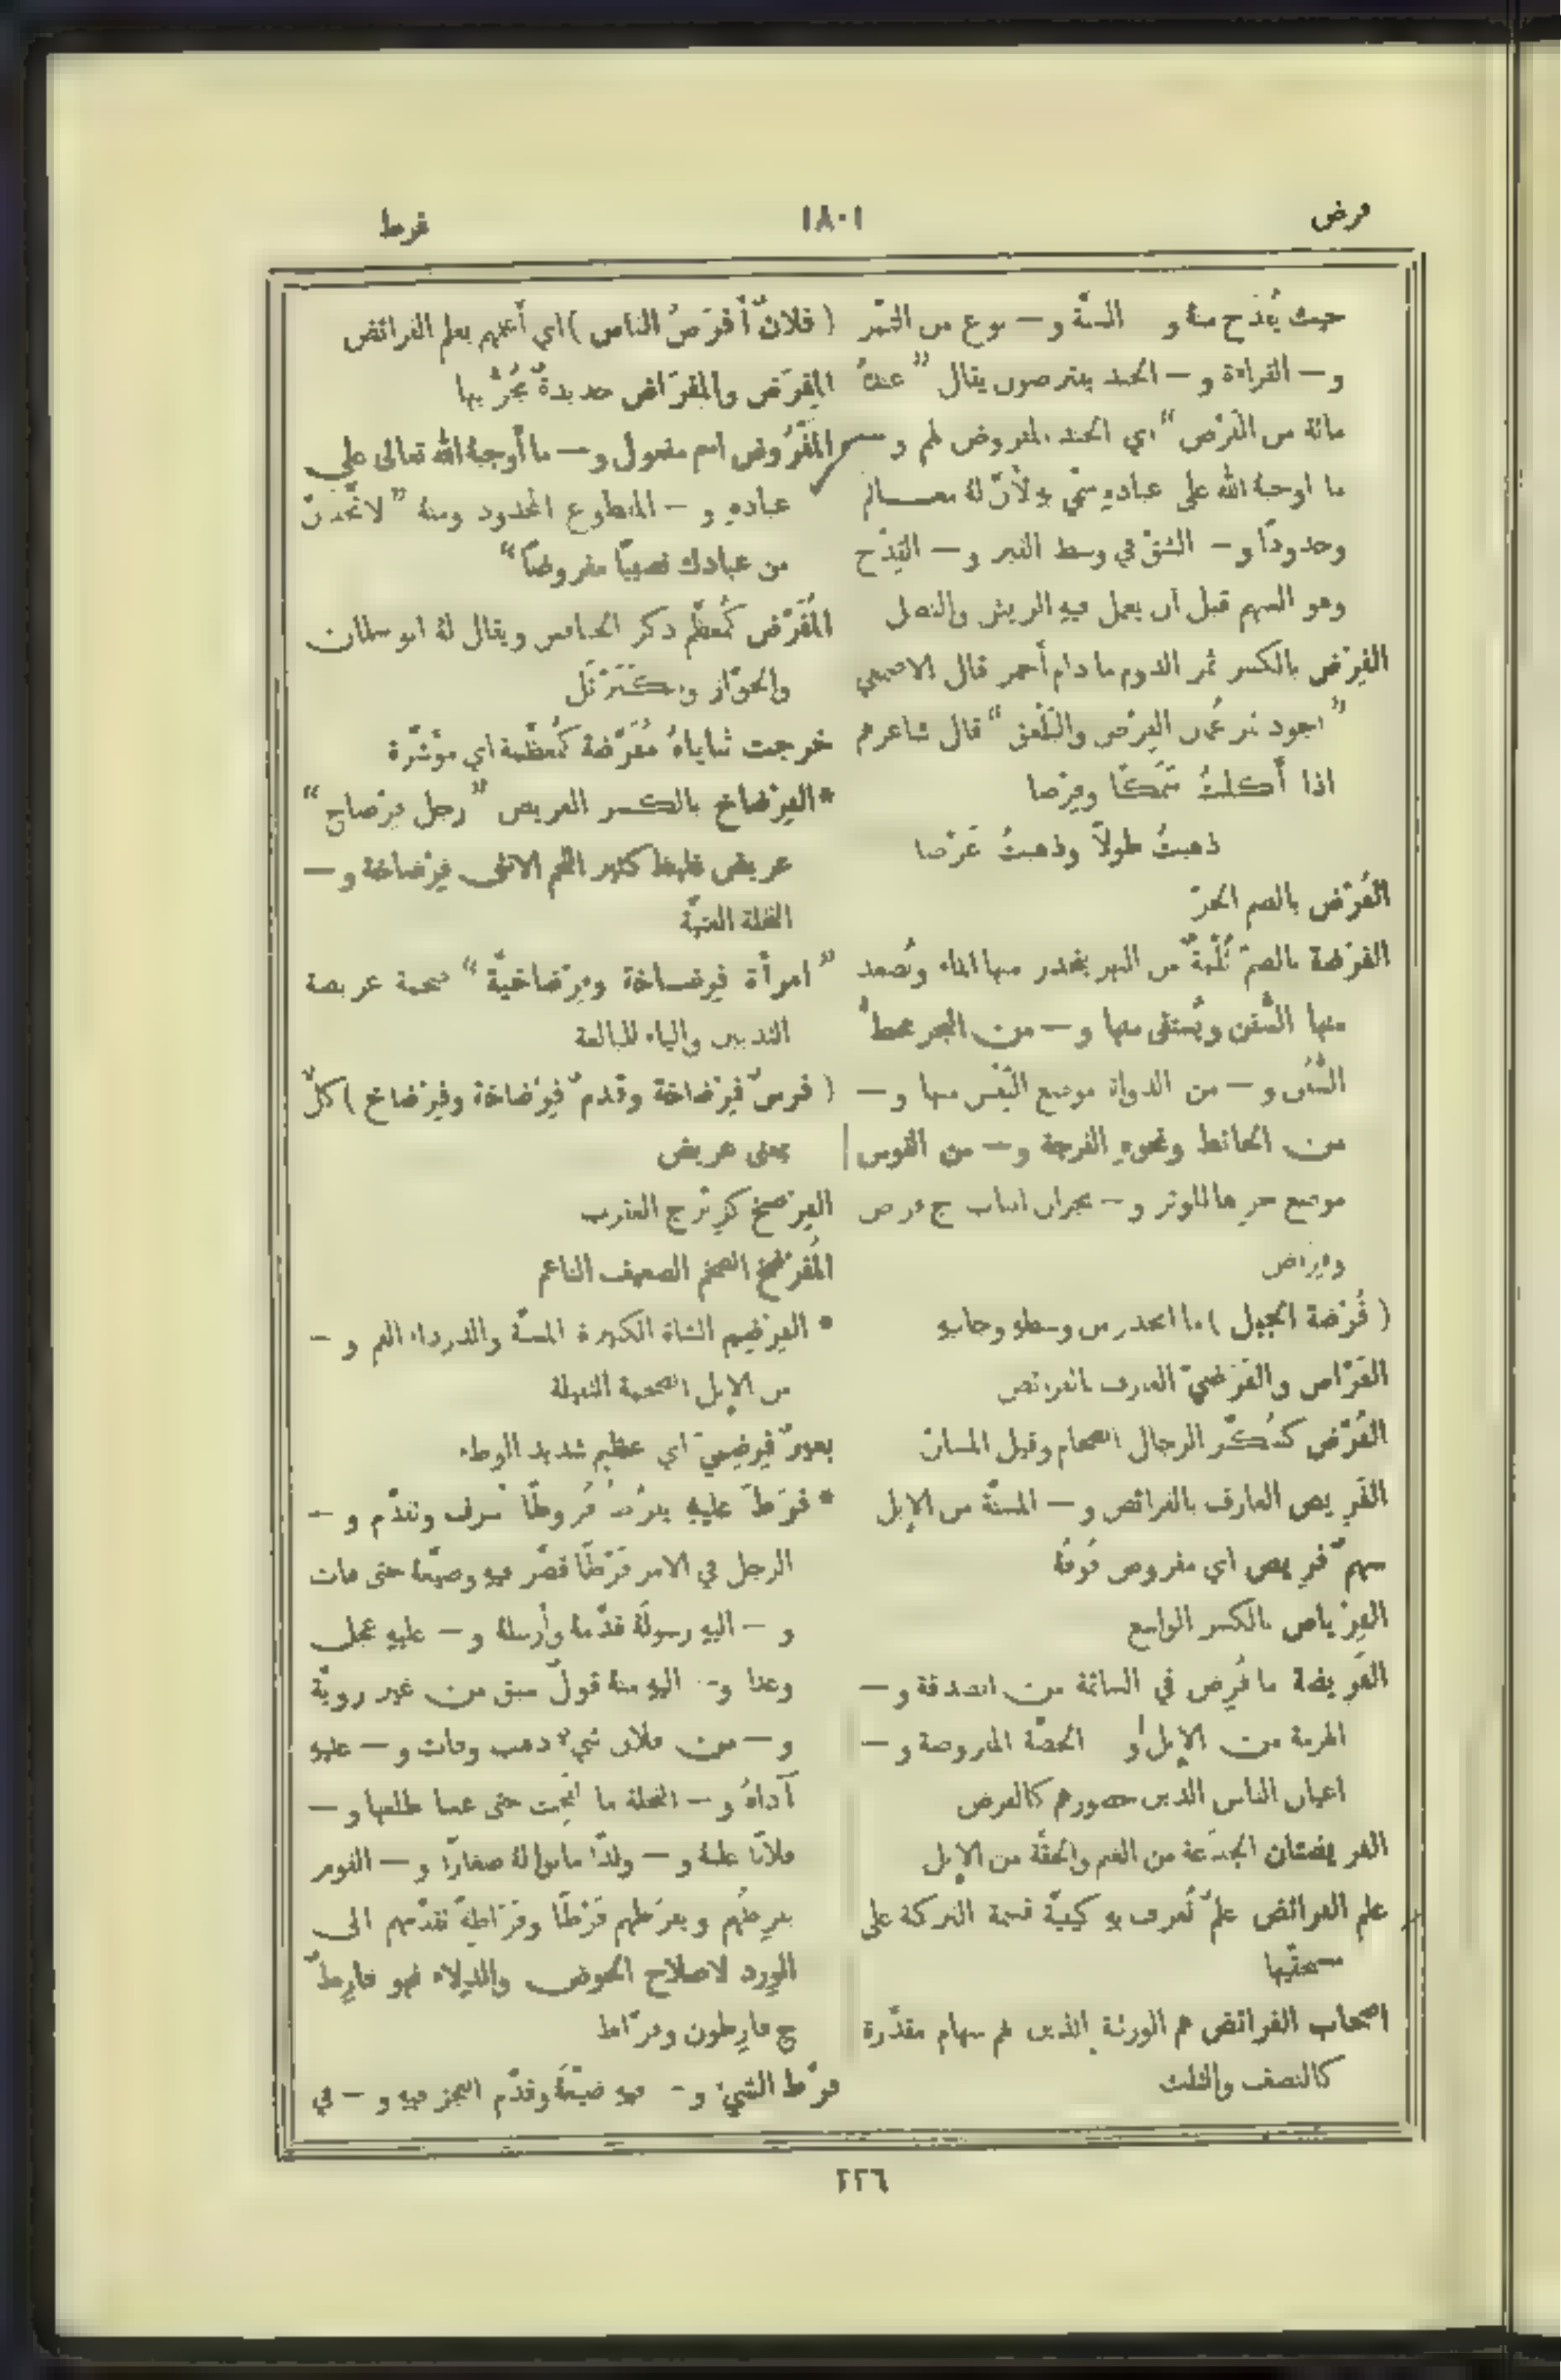 فرض
١٨٠١
فرط
حيث يُقدَح منهُ و السنّة و— نوع من التمر
و— القراءة و— الجند يفترضون يقال ”عندهُ
مائة من الفَرْض“ اي الجند المفروض لهم و—
ما اوجبهُ الله على عبادهِ سُمّي بهِ لأنّ لهُ معالم
وحدودًا و— الشقّ في وسط القبر و— القِدْح
وهو السهم قبل ان يعمل فيهِ الريش والنصل
الفِرْض بالكسر ثمر الدوم ما دام أحمر قال الاصمعي
”اجود تمر عُمان الفَرْض والبَلْعَق“ قال شاعرهم
اذا أكلتُ سمكًا وفَرْضا
ذهبتُ طولًا وذهبتُ عَرْضا
الفُرْض بالضم الحزّ
الفُرْضة بالضمّ ثُلْمةٌ من النهر ينحدر منها الماء وتُصعد
منها السُفن ويُستقى منها و— من البحر محطّ
السُّفُن و— من الدواة موضع النِقْس منها و—
من الحائط ونحوهِ الفرجة و— من القوس
موضع حزّها للوتر و— نجران الباب ج فرض
وفِراض
(فُرْضة الجبل) ما انحدر من وسطهِ وجانبهِ
الفَرّاض والفَرَضيّ العارف بالفرائض
الفُرَّض كسُكَّر الرجال الضخام وقيل المسانّ
الفَريض العارف بالفرائض و— المسنّة من الإبل
سهمٌ فريض اي مفروض فُوقهُ
الفِرْياض بالكسر الواسع
الفَريضة ما فُرِض في السائمة من الصدقة و—
الهرمة من الإبل و الحصّة المفروضة و—
اعيان الناس الذين حضورهم كالفرض
الفريضتان الجذعة من الغنم والحقّة من الإبل
علم الفرائض علمٌ تُعرف بهِ كيفيّة قسمة التركة على
مستحقّيها
اصحاب الفرائض هم الورثة الذين لهم سهام مقدّرة
كالنصف والثلث
(فلانٌ أفرَضُ الناس) اي أعلمهم بعلم الفرائض
المِفرَض والمِفْرَاض حديدةٌ يُحَزّ بها
المَفْرُوض اسم مفعول و— ما أوجبهُ الله تعالى على
عبادهِ و— المقطوع المحدود ومنهُ ”لاتّخذنّ
من عبادك نصيبًا مفروضًا“
المُفَرَّض كمُعظَّم ذكر الخنافس ويقال لهُ ابو سلمان
والحوّاز وكَبَرْتَل
خرجت ثناياهُ مُفَرَّضة كمُعظَّمة اي مؤشّرة
*الفِرْضاخ بالكسر العريض ”رجل فِرْضاخ“
عريض غليظ كثير اللحم الانثى فِرْضاخة و—
النخلة الفتيّة
”امرأة فِرْضاخة وفِرْضاخيّة“ ضخمة عريضة
الثديين والياء للمبالغة
(فرسٌ فِرْضاخة وقدمٌ فِرْضاخة وفِرْضاخ) كلٌّ
بمعنى عريض
الفِرْضِخ كزِبْرِج العقرب
المُفَرْضَخ الضخم الضعيف الناعم
*الفِرْضِم الشاة الكبيرة المسنّة والدرداء الفم و—
من الإبل الضخمة الثقيلة
بعيرٌ فِرْضِميّ اي عظيم شديد الوطء
*فَرَطَ عليهِ يفرُط فُروطًا اسرف وتقدّم و—
الرجل في الامر فَرْطًا قصّر فيهِ وضيّعهُ حتى فات
و— اليهِ رسولهُ قدّمهُ وأرسلهُ و— عليهِ عجل
وعدا و— اليهِ منهُ قولٌ سبق من غير رويّة
و— من فلان شيءٌ ذهب وفات و— عليهِ
آداهُ و— النخلة ما لُقحت حتى عسا طلعها و—
فلانًا غلبهُ و— ولدًا ماتوا لهُ صغارًا و— القوم
يفرِطُهم ويفرُطهم فَرْطًا وفَرَاطةً تقدّمهم الى
الوِرد لاصلاح الحوض والدِلاء فهو فارِطٌ
ج فارطون وفُرّاط
فرّط الشيءَ و— فيهِ ضيّعهُ وقدّم العجز فيهِ و— في
٢٢٦